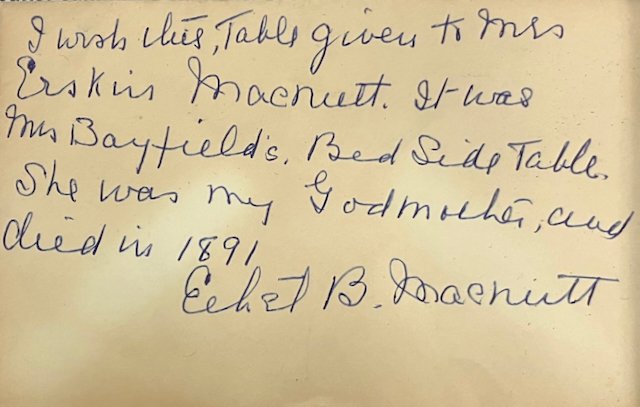 I wish this, Table given to Mrs
Erskin Macnutt. It was
Mrs Bayfield's. Bed Side Table.
She was my Godmother, and
died in 1891
B. Macnutt